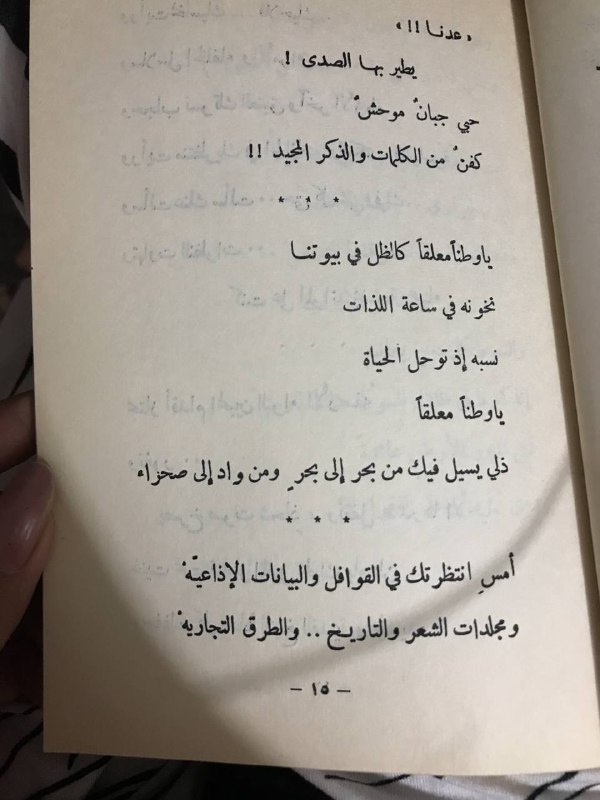 « عدنا !! »
يطير بها الصدى !
حبي جبانٌ موحشٌ
كفنٌ من الكلمات والذكر المجيد !!
* * *
ياوطناً معلقاً كالظل في بيوتنا
نخونه في ساعة اللذات
نسبه إذ توحل الحياة
ياوطناً معلقاً
ذلي يسيل فيك من بحر إلى بحرٍ ومن واد إلى صحراء
* * *
أمسِ انتظرتك في القوافل والبيانات الإذاعيّهْ
ومجلدات الشعر والتاريخ .. والطرق التجاريهْ
— ١٥ —